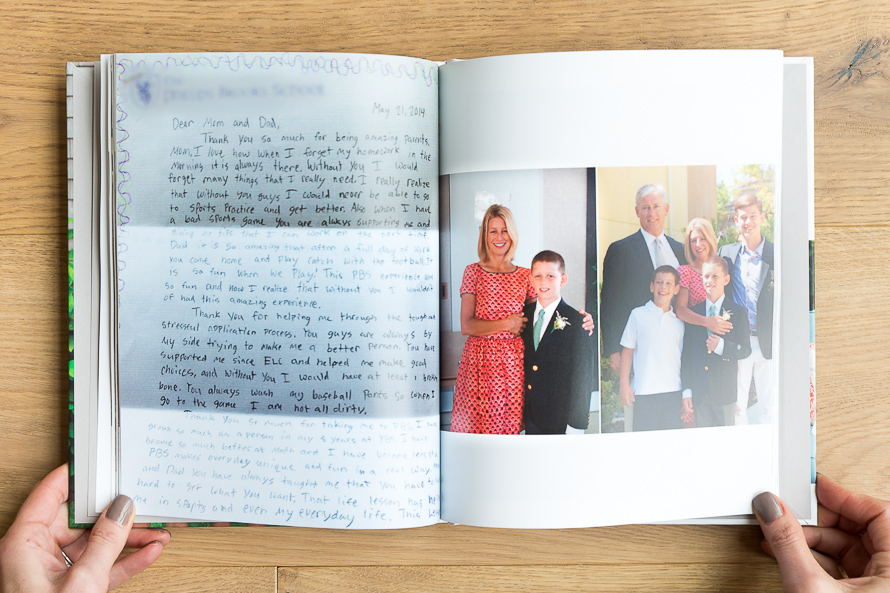 May 21, 2014
Dear Mom and Dad,
Thank you so much for being amazing parents.
Mom, I love how when I forget my homework in the
morning it is always there. Without you I would
forget many things that I really need. I really realize
that without you guys I would never be able to go
to sports practice and get better. Also when I had
a bad sports game you are always supporting me and
Dad it is so amazing that after a full day of work
you come home and play catch with the football. It
is so fun when we play! This PBS experience was
so fun and now I realize that without you I wouldn't
of had this amazing experience.
Thank you for helping me through the tough and
stressful application process. You guys are always by
my side trying to make me a better person. You have
supported me since ELC and helped me make good
choices, and without you I would have at least 1 broken
bone. You always wash my baseball pants so when I
go to the game I am not all dirty.
Thank you so much for taking me to PBS. I have
grown so much as a person in my 8 years at PBS. I have
become so much better at math and I have become
PBS makes everyday unique and fun in a cool way. Mom
and Dad you have always taught me that you have to
hard to get what you want. That life lesson has
me in sports and even my everyday life. This